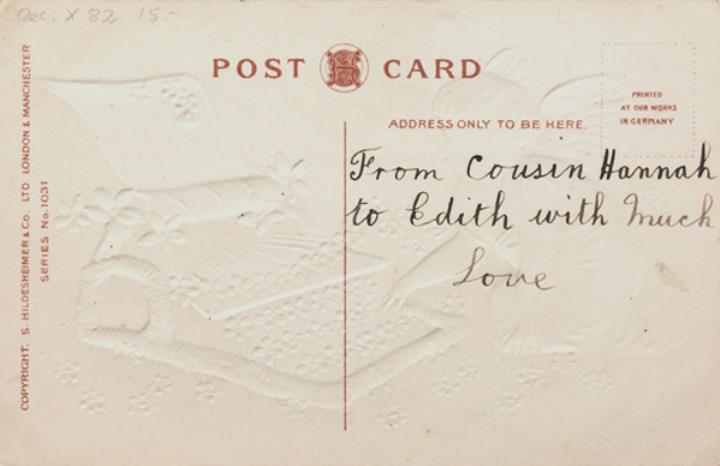 Dec. X 82 15.-
POST CARD
PRINTED
AT OUR WORKS
IN GERMANY
ADDRESS ONLY TO BE HERE.
From Cousin Hannah
to Edith with Much
Love
COPYRIGHT. S. HILDESHEIMER & Co. LTD. LONDON & MANCHESTER
SERIES No. 1031